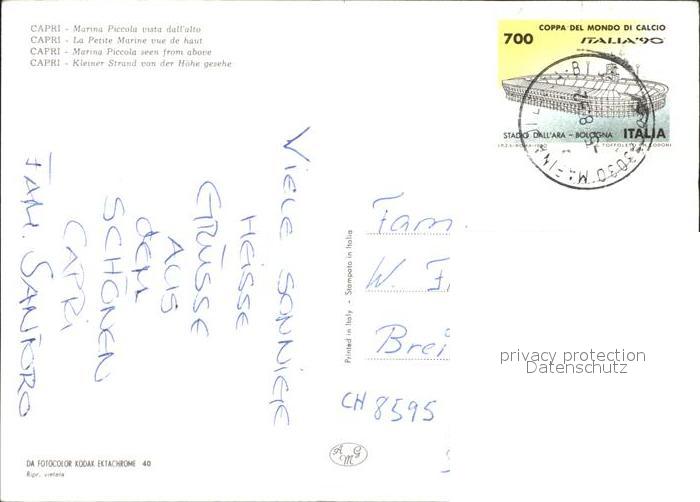 CAPRI - Marina Piccola vista dall'alto
CAPRI - La Petite Marine vue de haut
CAPRI - Marina Piccola seen from above
CAPRI - Kleiner Strand von der Höhe gesehe
700
COPPA DEL MONDO DI CALCIO
ITALIA'90
STADIO DALL'ARA - BOLOGNA ITALIA
VIELE SONNIGE
HEISSE
GRÜSSE
AUS
DEM
SCHÖNEN
CAPRI
FAM. SANTORO
Printed in Italy - Stampato in Italia
Fam.
W. F
Brei
CH 8595
privacy protection
Datenschutz
DA FOTOCOLOR KODAK EKTACHROME 40
Ripr. vietata
AMG